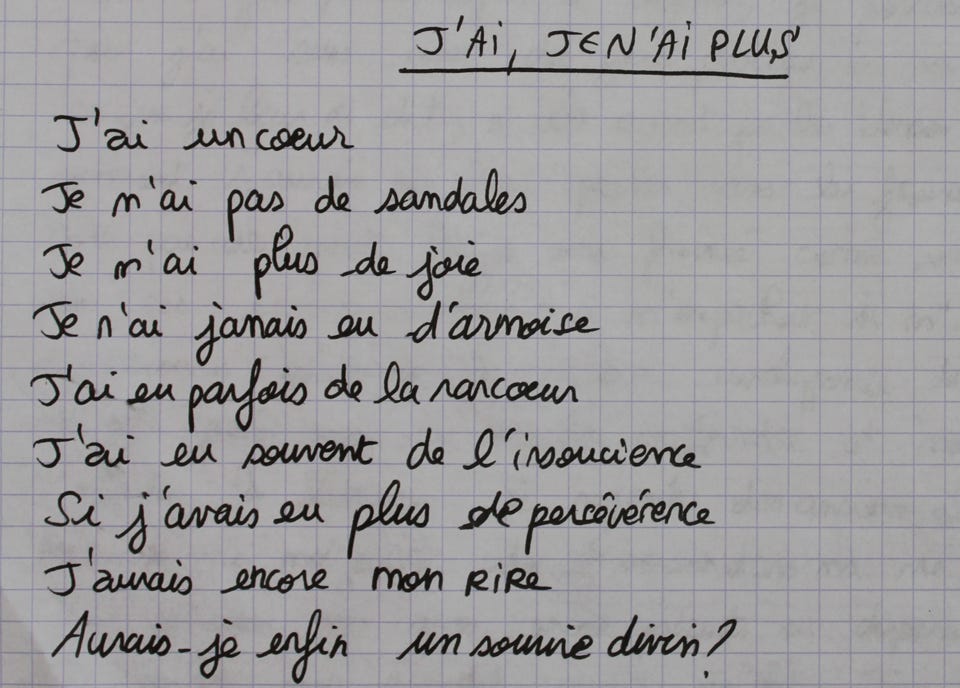 J'AI, JE N'AI PLUS
J'ai un coeur
Je n'ai pas de sandales
Je n'ai plus de joie
Je n'ai jamais eu d'armoise
J'ai eu parfois de la rancoeur
J'ai eu souvent de l'insoucience
Si j'avais eu plus de percévérence
J'aurais encore mon RIRE
Aurais-je enfin un sourire divin?